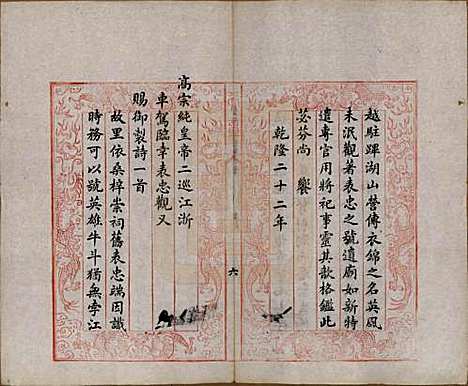 越駐蹕湖山誉傳衣錦之名英風
未泯觀著表忠之號遺廟如新特
遣專官用將祀事靈其歆格鑑此
苾芬尚饗
乾隆二十二年
六
高宗純皇帝二巡江浙
車駕臨幸表忠觀又
賜御製詩一首
故里依桑梓崇祠舊表忠端因識
時務可以號英雄牛斗猶無孛江